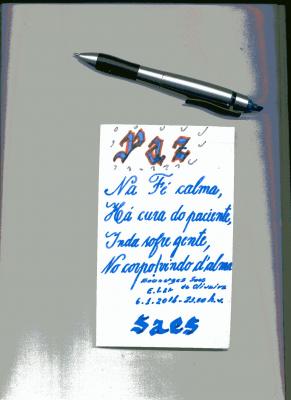 Paz
Na Fé calma,
Há cura do paciente,
Inda sofre gente,
No corpo/vindo d'alma
Saes
de Oliveira
6.1.2016
Saes